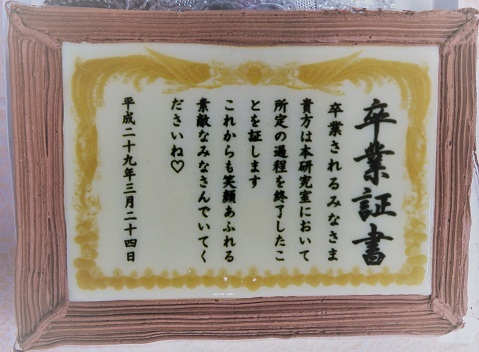 卒業証書
卒業されるみなさま
貴方は本研究室において
所定の過程を終了したこ
とを証します
これからも笑顔あふれる
素敵なみなさんでいてく
ださいね♡
平成二十九年三月二十四日